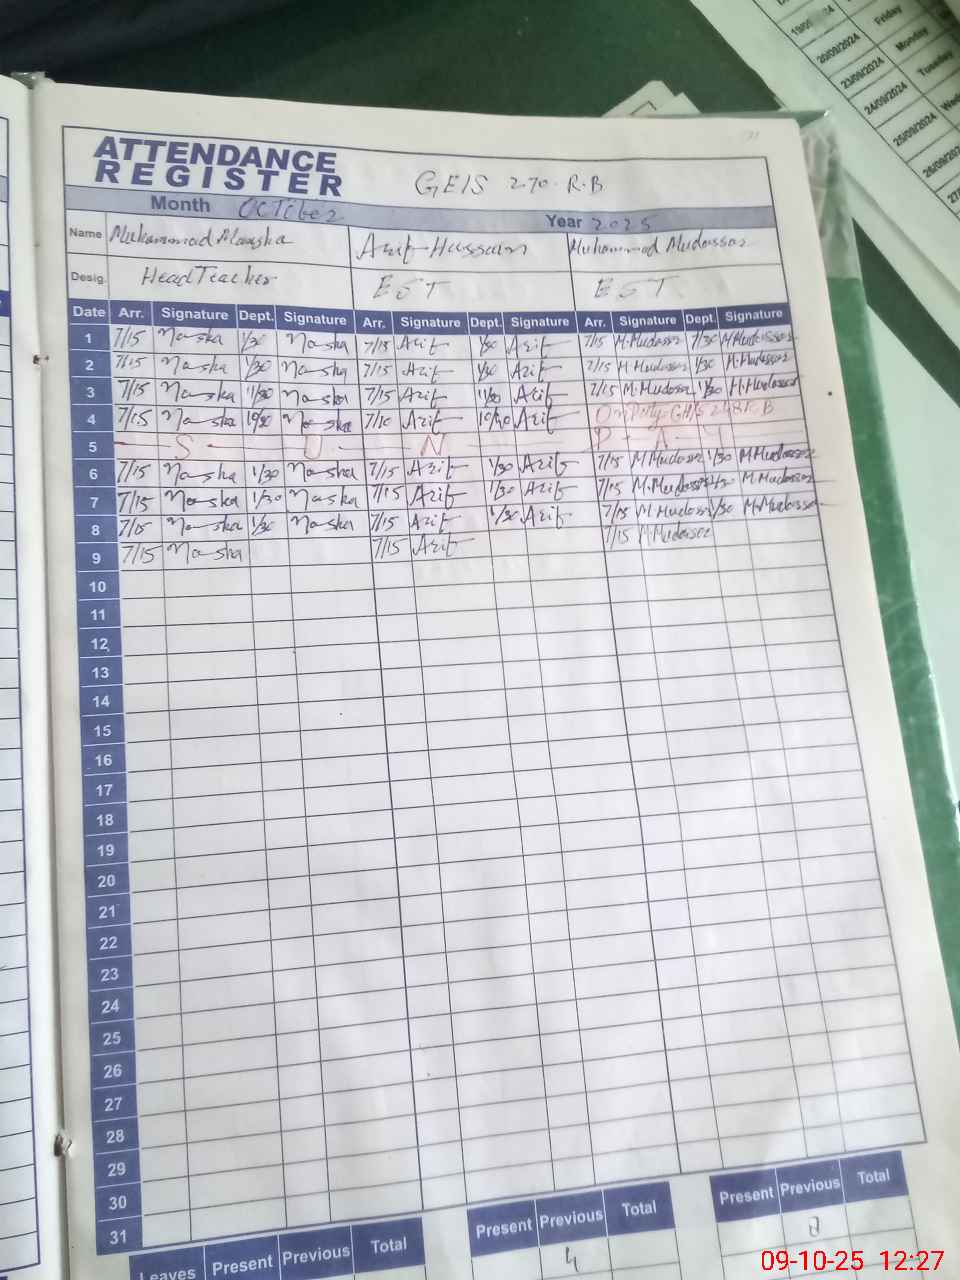 19/09/2024 Friday
20/09/2024 Monday
23/09/2024 Tuesday
24/09/2024
25/09/2024
26/09/202
27/
ATTENDANCE
REGISTER
GEIS 270. R.B
Month OCTOber Year 2025
Name Muhammad Mansha Arif Hussain Muhammad Mudassar
Desig. Head Teacher EST EST
Date Arr. Signature Dept. Signature Arr. Signature Dept. Signature Arr. Signature Dept. Signature
1 7/15 Mansha 1/30 Mansha 7/15 Arif 1/30 Arif 7/15 M.Mudassar 1/30 M.Mudassar
2 7/15 Mansha 1/30 Mansha 7/15 Arif 1/30 Arif 7/15 M.Mudassar 1/30 M.Mudassar
3 7/15 Mansha 11/30 Mansha 7/15 Arif 11/30 Arif 7/15 M.Mudassar 11/30 M.Mudassar
4 7/15 Mansha Mansha 7/10 Arif 10/40 Arif On Duty
5 S U N D A Y
6 7/15 Mansha 1/30 Mansha 7/15 Arif 1/30 Arif 7/15 M.Mudassar 1/30 M.Mudassar
7 7/15 Mansha 1/30 Mansha 7/15 Arif 1/30 Arif 7/15 M.Mudassar 1/30 M.Mudassar
8 7/15 Mansha 1/30 Mansha 7/15 Arif 1/30 Arif 7/15 M.Mudassar 1/30 M.Mudassar
9 7/15 Mansha 7/15 Arif 7/15 M.Mudassar
10
11
12
13
14
15
16
17
18
19
20
21
22
23
24
25
26
27
28
29
30
31
Leaves Present Previous Total Present Previous Total Present Previous Total
4
09-10-25 12:27